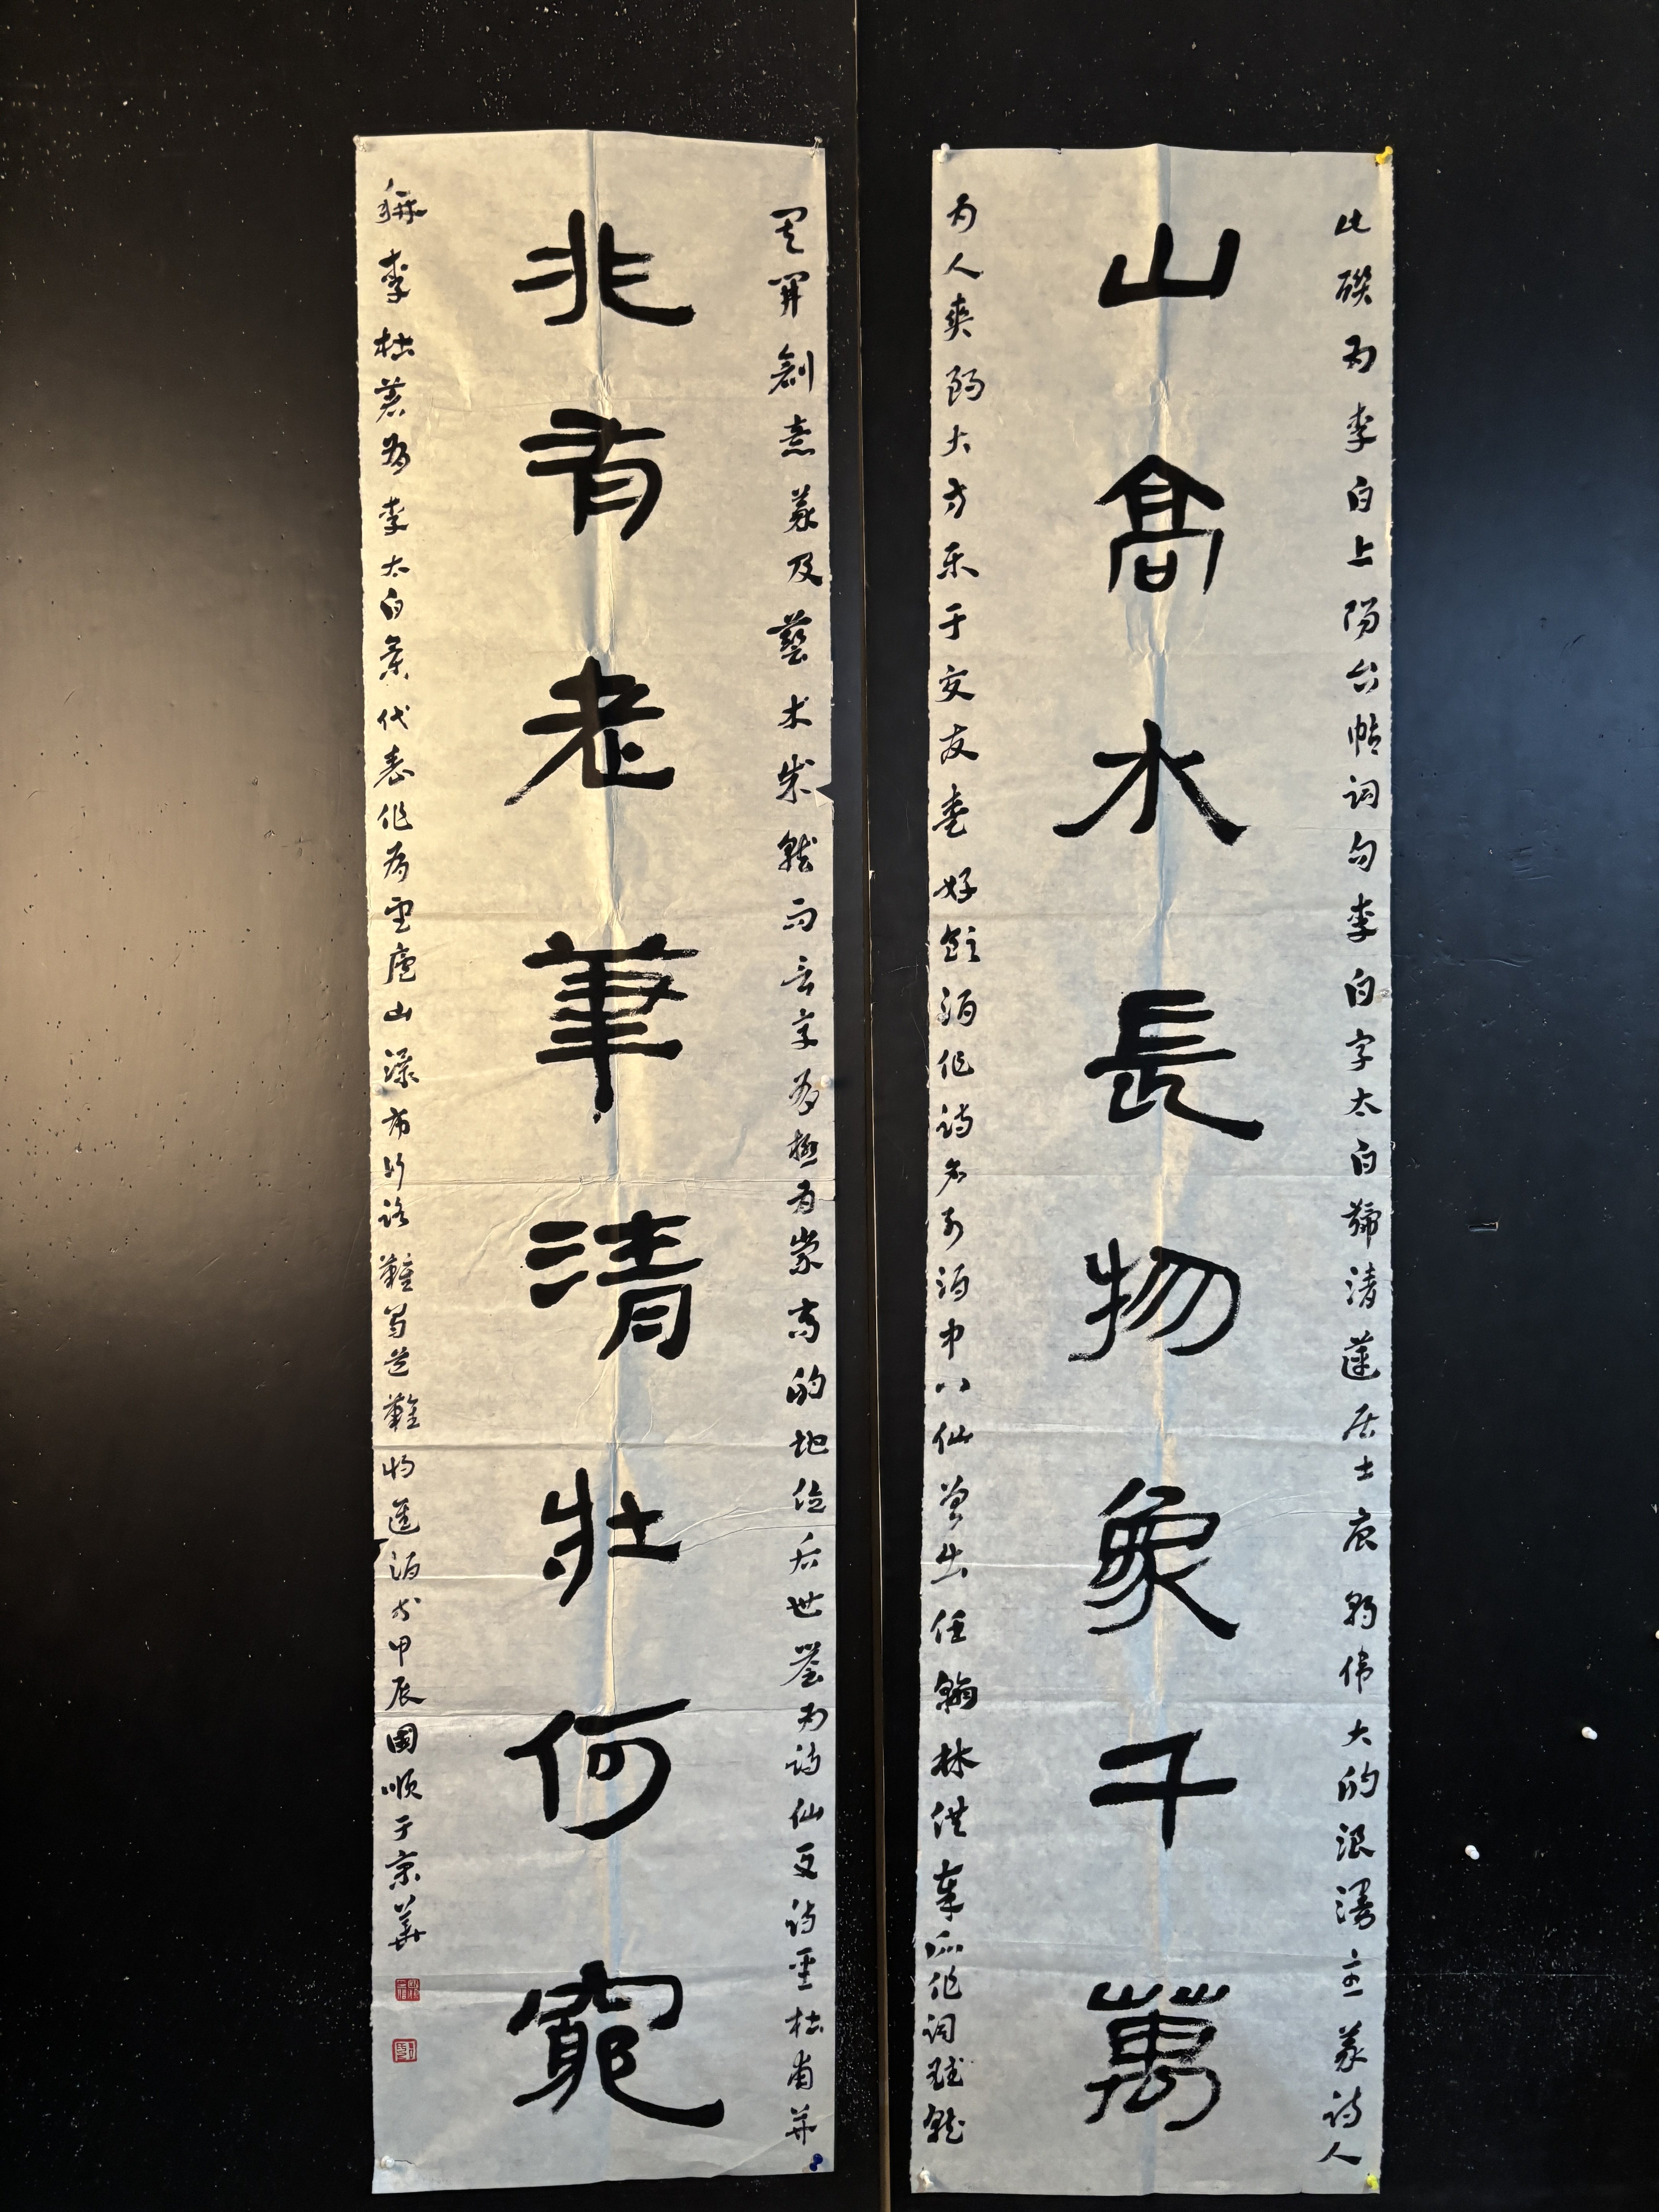 此联为李白上阳台帖词句李白字太白号清莲居士唐朝伟大的浪漫主义诗人
山高水長物象千萬
为人爽朗大方乐于交友爱好饮酒作诗名列酒中八仙曾出任翰林供奉
其开创意义及艺术成就而言享为极为崇高的地位后世誉为诗仙与诗圣杜甫并
非有老筆清壯何窮
称李杜著有李太白集代表作为望庐山瀑布行路难蜀道难将进酒 甲辰国顺于京华